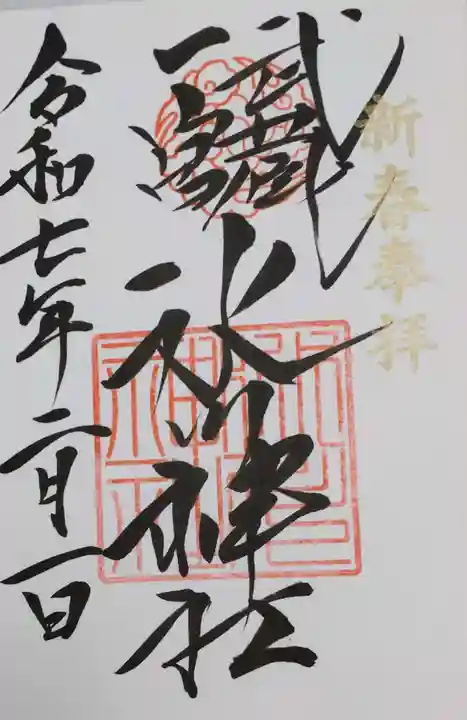 新春奉拝
武蔵
一宮
氷川神社
令和七年二月一日